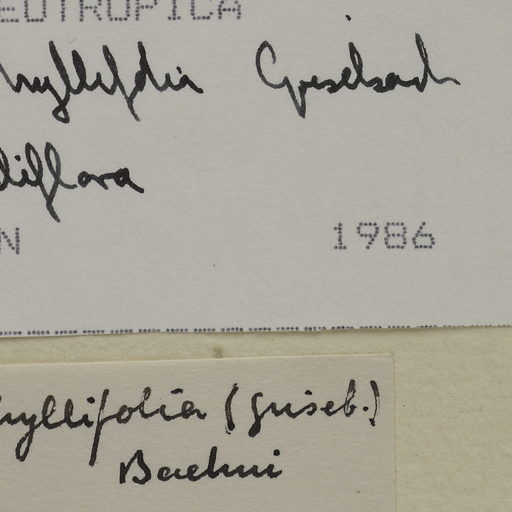 EOTROPICA
hyllifolia Grisebach
diflora
N 1986
hyllifolia (Griseb.)
Baehni